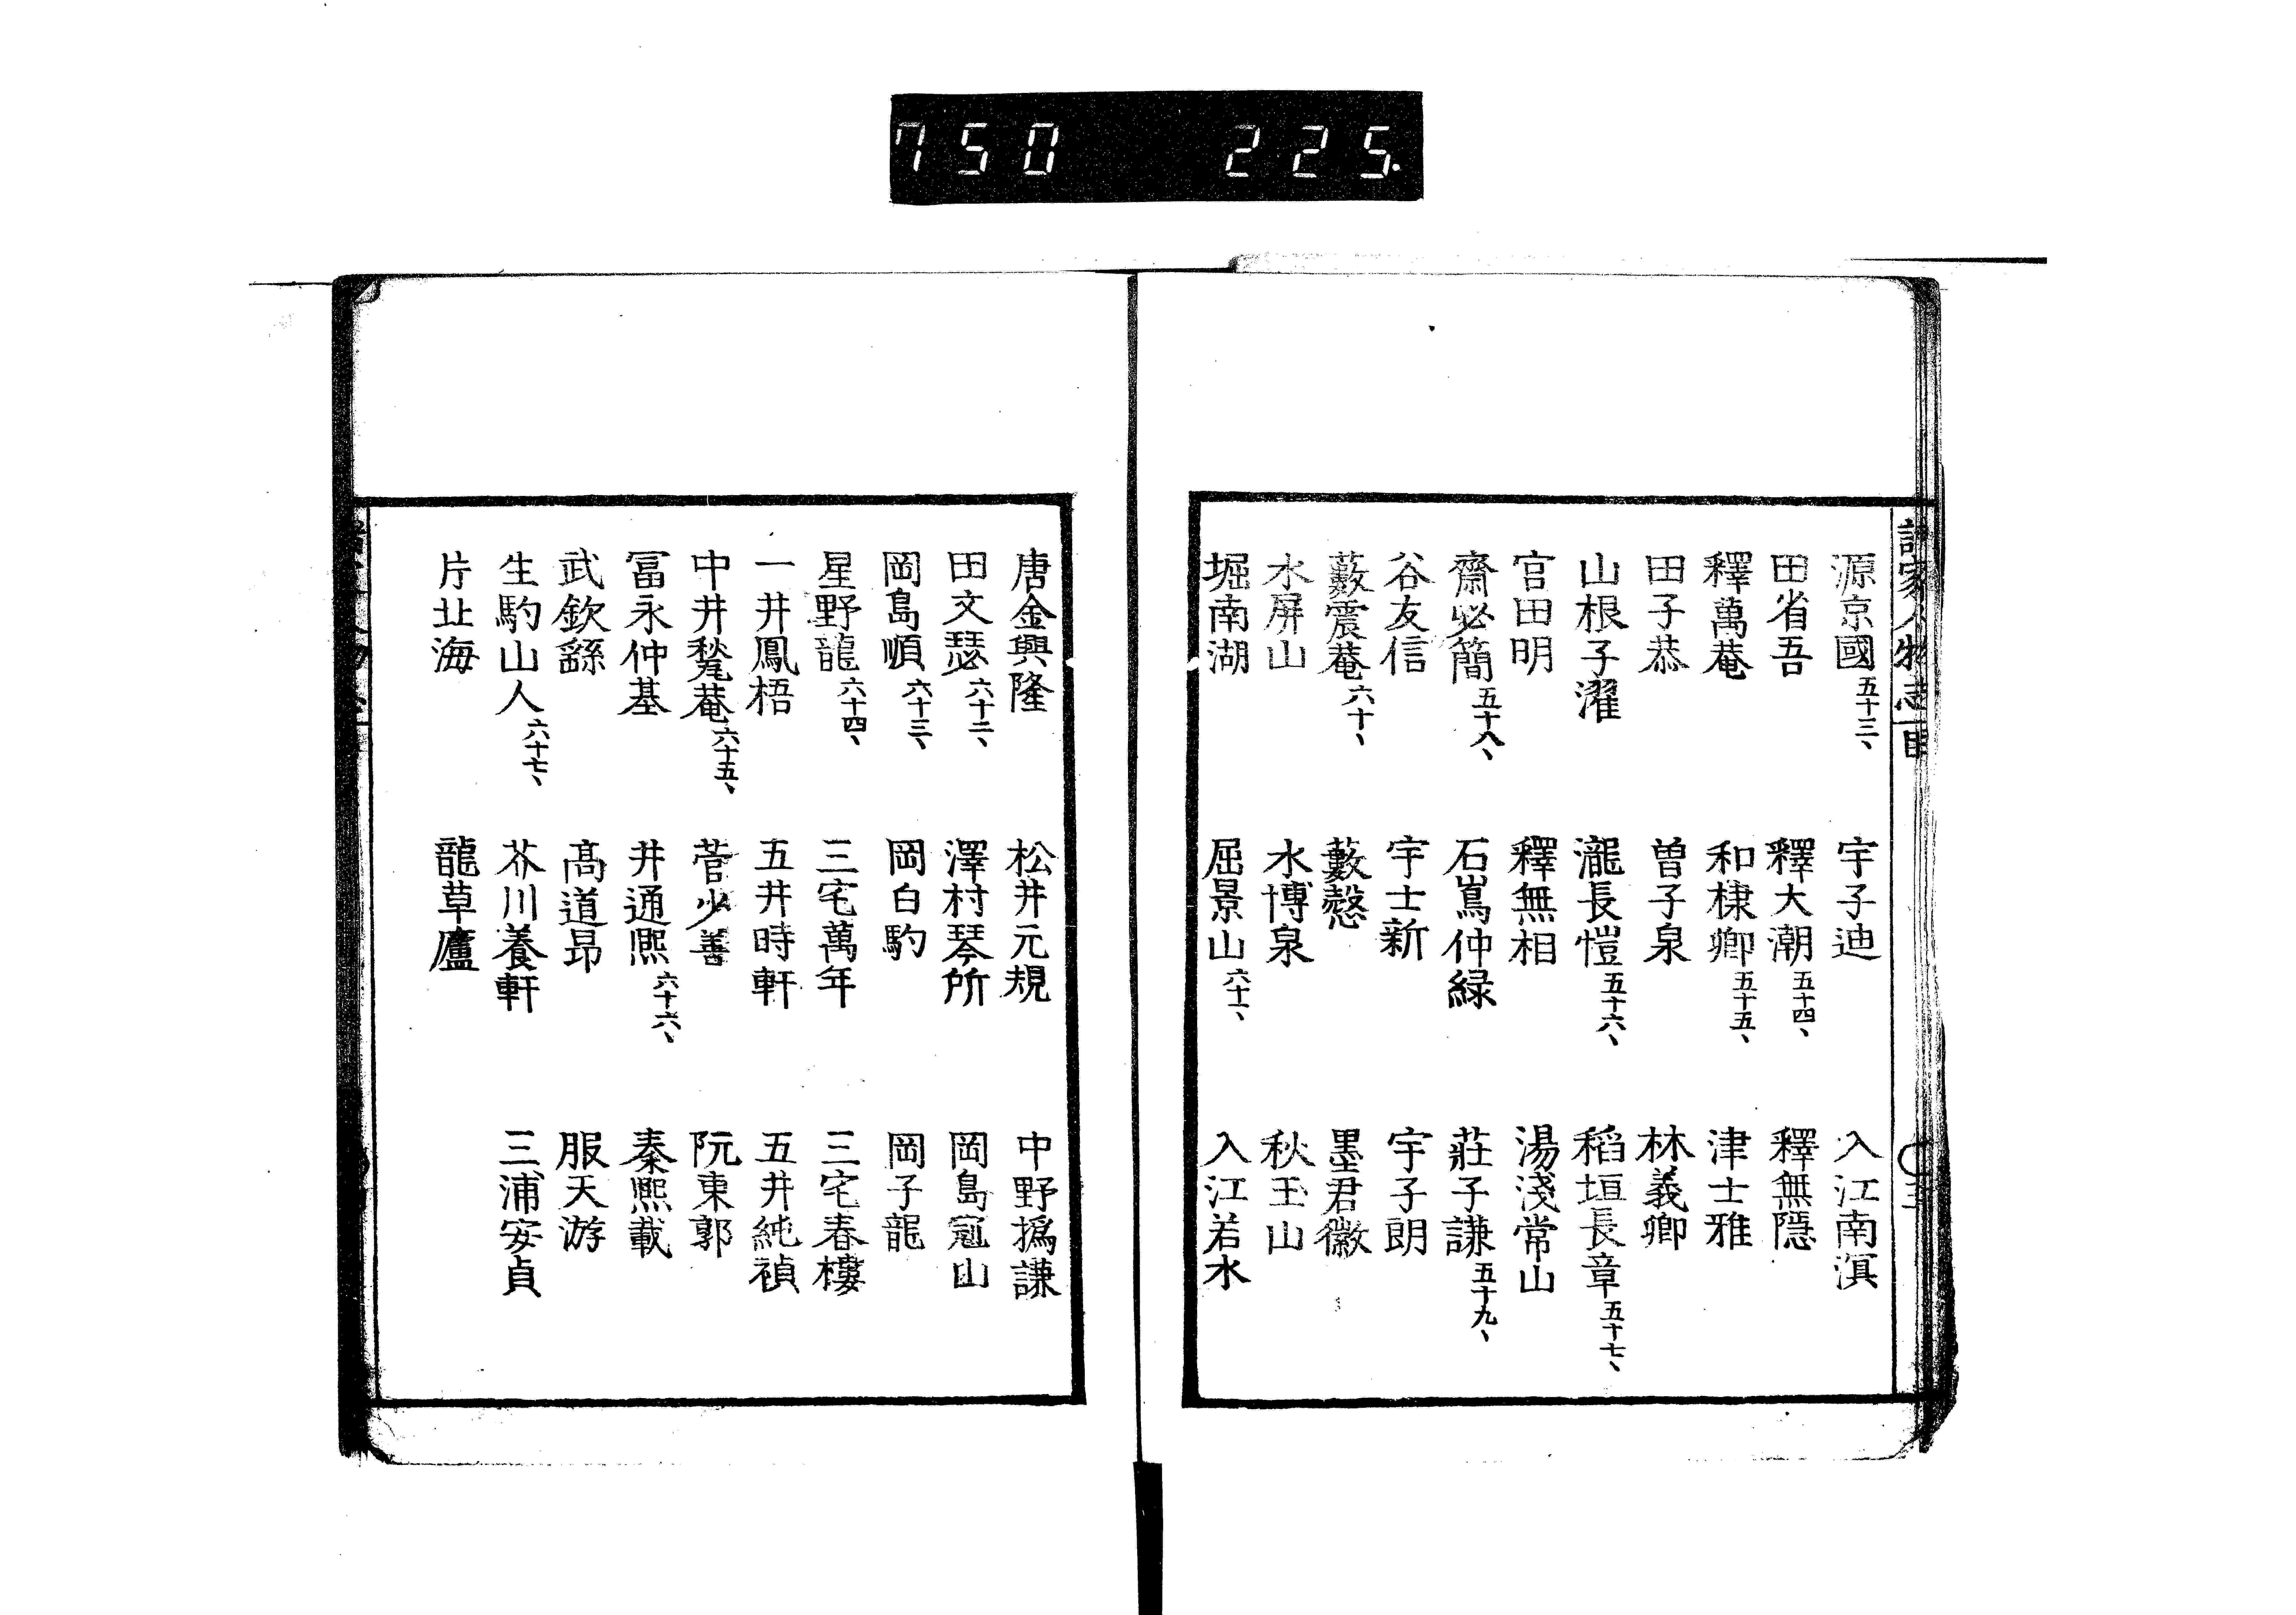 750 225.
諸家人物志 目
源京國 五十三、 宇子迪 入江南溟
田省吾 釋大潮 五十四、 釋無隱
釋萬菴 和棣卿 五十五、 津士雅
田子恭 曽子泉 林義卿
山根子濯 瀧長愷 五十六、 稻垣長章 五十七、
官田明 釋無相 湯淺常山
齋必簡 五十八、 石嶌仲緑 莊子謙 五十九、
谷友信 宇士新 宇子朗
藪震菴 六十、 藪愨 墨君徽
水屏山 水博泉 秋玉山
堀南湖 屈景山 六十一、 入江若水
唐金興隆 松井元規 中野撝謙
田文瑟 六十二、 澤村琴所 岡島冠山
岡島順 六十三、 岡白駒 岡子龍
星野龍 六十四、 三宅萬年 三宅春樓
一井鳳梧 五井時軒 五井純禎
中井甃菴 六十五、 菅少善 阮東郭
冨永仲基 井通熈 六十六、 秦熈載
武欽繇 髙道昂 服天游
生駒山人 六十七、 芥川養軒 三浦安貞
片北海 龍草廬